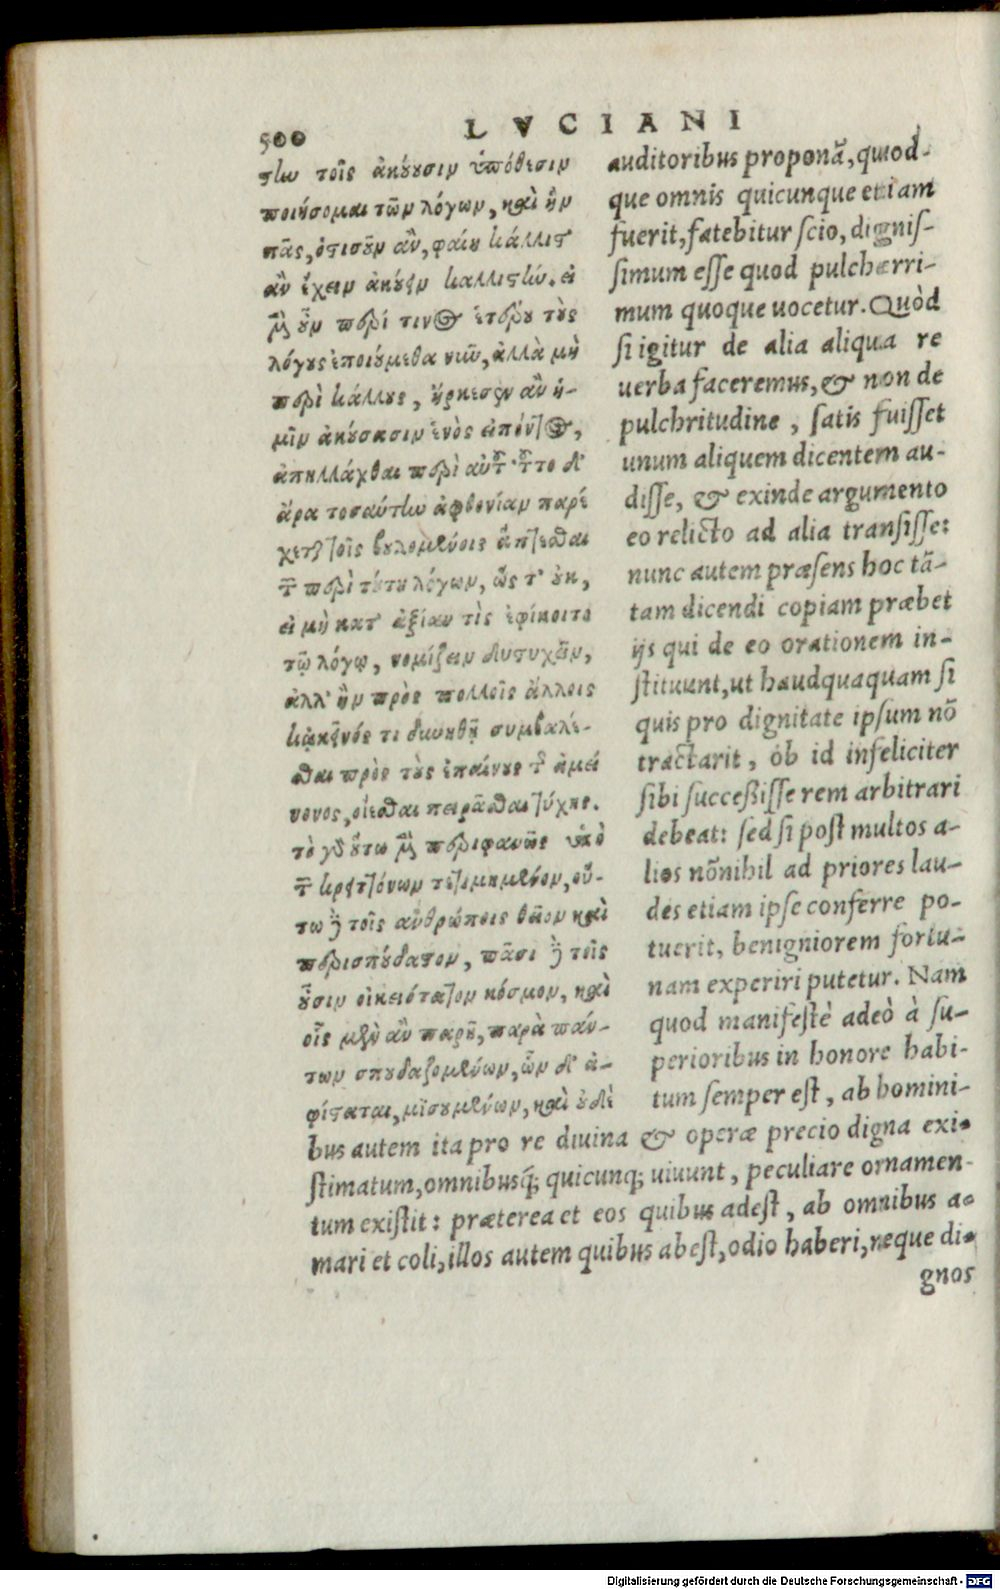 500
LVCIANI
τὴν τοῖς ἀκούουσιν ὑπόθεσιν
ποιήσομαι τῶν λόγων, καὶ ἣν
πᾶς, ὁτισοῦν ἂν, φαίη κάλλιστ᾽
ἂν ἔχειν ἀκούειν καλλίστην. εἰ
μὲν οὖν περί τινος ἑτέρου τοὺς
λόγους ἐποιούμεθα νυνὶ, ἀλλὰ μὴ
περὶ κάλλους, ἤρκεσεν ἂν ἡ-
μῖν ἀκούσασιν ἑνὸς εἰπόντος,
ἀπηλλάχθαι περὶ αὐτοῦ. τοῦτο δ᾽
ἄρα τοσαύτην ἀφθονίαν παρέ
χεται τοῖς βουλομένοις ἅπτεσθαι
τῶν περὶ τούτου λόγων, ὥς τ᾽ οὐκ,
εἰ μὴ κατ᾽ ἀξίαν τὶς ἐφίκοιτο
τῷ λόγῳ, νομίζειν δυστυχεῖν,
ἀλλ᾽ ἢν πρὸς πολλοῖς ἄλλοις
κἀκεῖνός τι δυνηθῇ συμβαλέ-
σθαι πρὸς τοὺς ἐπαίνους τῆς ἀμεί
νονος, οἴεσθαι πειρᾶσθαι τύχης.
τὸ γὰρ οὕτω μὲν περιφανῶς ὑπὸ
τῶν κρειττόνων τετιμημένον, οὕ-
τω δὲ τοῖς ἀνθρώποις θεῖον καὶ
περισπούδαστον, πᾶσι δὲ τοῖς
οὖσιν οἰκειότατον κόσμον, καὶ
οἷς μὲν ἂν παρῇ, παρὰ πάν-
των σπουδαζομένων, ὧν δ᾽ ἀ-
φίσταται, μισουμένων, καὶ οὐδὲ
auditoribus proponā, quod-
que omnis quicunque etiam
fuerit, fatebitur scio, dignis-
simum esse quod pulcherri-
mum quoque uocetur. Quòd
si igitur de alia aliqua re
uerba faceremus, & non de
pulchritudine, satis fuisset
unum aliquem dicentem au-
disse, & exinde argumento
eo relicto ad alia transisse:
nunc autem præsens hoc tā-
tam dicendi copiam præbet
ijs qui de eo orationem in-
stituunt, ut haudquaquam si
quis pro dignitate ipsum nō
tractarit, ob id infeliciter
sibi successisse rem arbitrari
debeat: sed si post multos a-
lios nōnihil ad priores lau-
des etiam ipse conferre po-
tuerit, benigniorem fortu-
nam experiri putetur. Nam
quod manifestè adeò à su-
perioribus in honore habi-
tum semper est, ab homini-
bus autem ita pro re diuina & operæ precio digna exi-
stimatum, omnibusq́; quicunq; uiuunt, peculiare ornamen-
tum existit: præterea et eos quibus adest, ab omnibus a-
mari et coli, illos autem quibus abest, odio haberi, neque di-
gnos
Digitalisierung gefördert durch die Deutsche Forschungsgemeinschaft - DFG